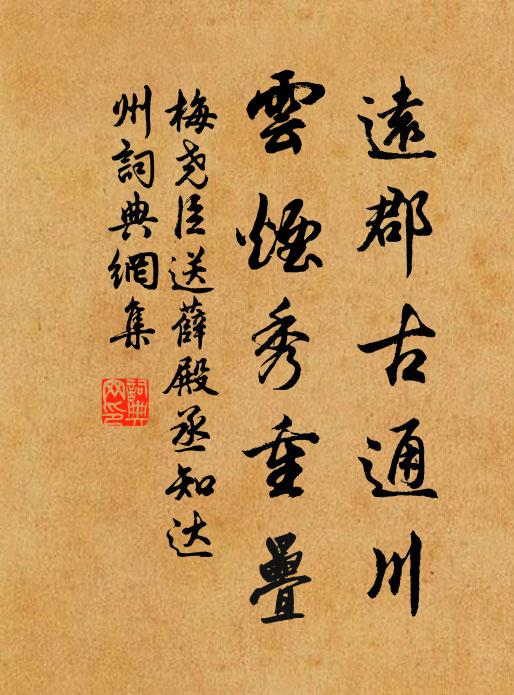 遠郡古通川
雲煙秀重疊
梅尧臣送薛殿丞知达
州詞典網集
詞典網印